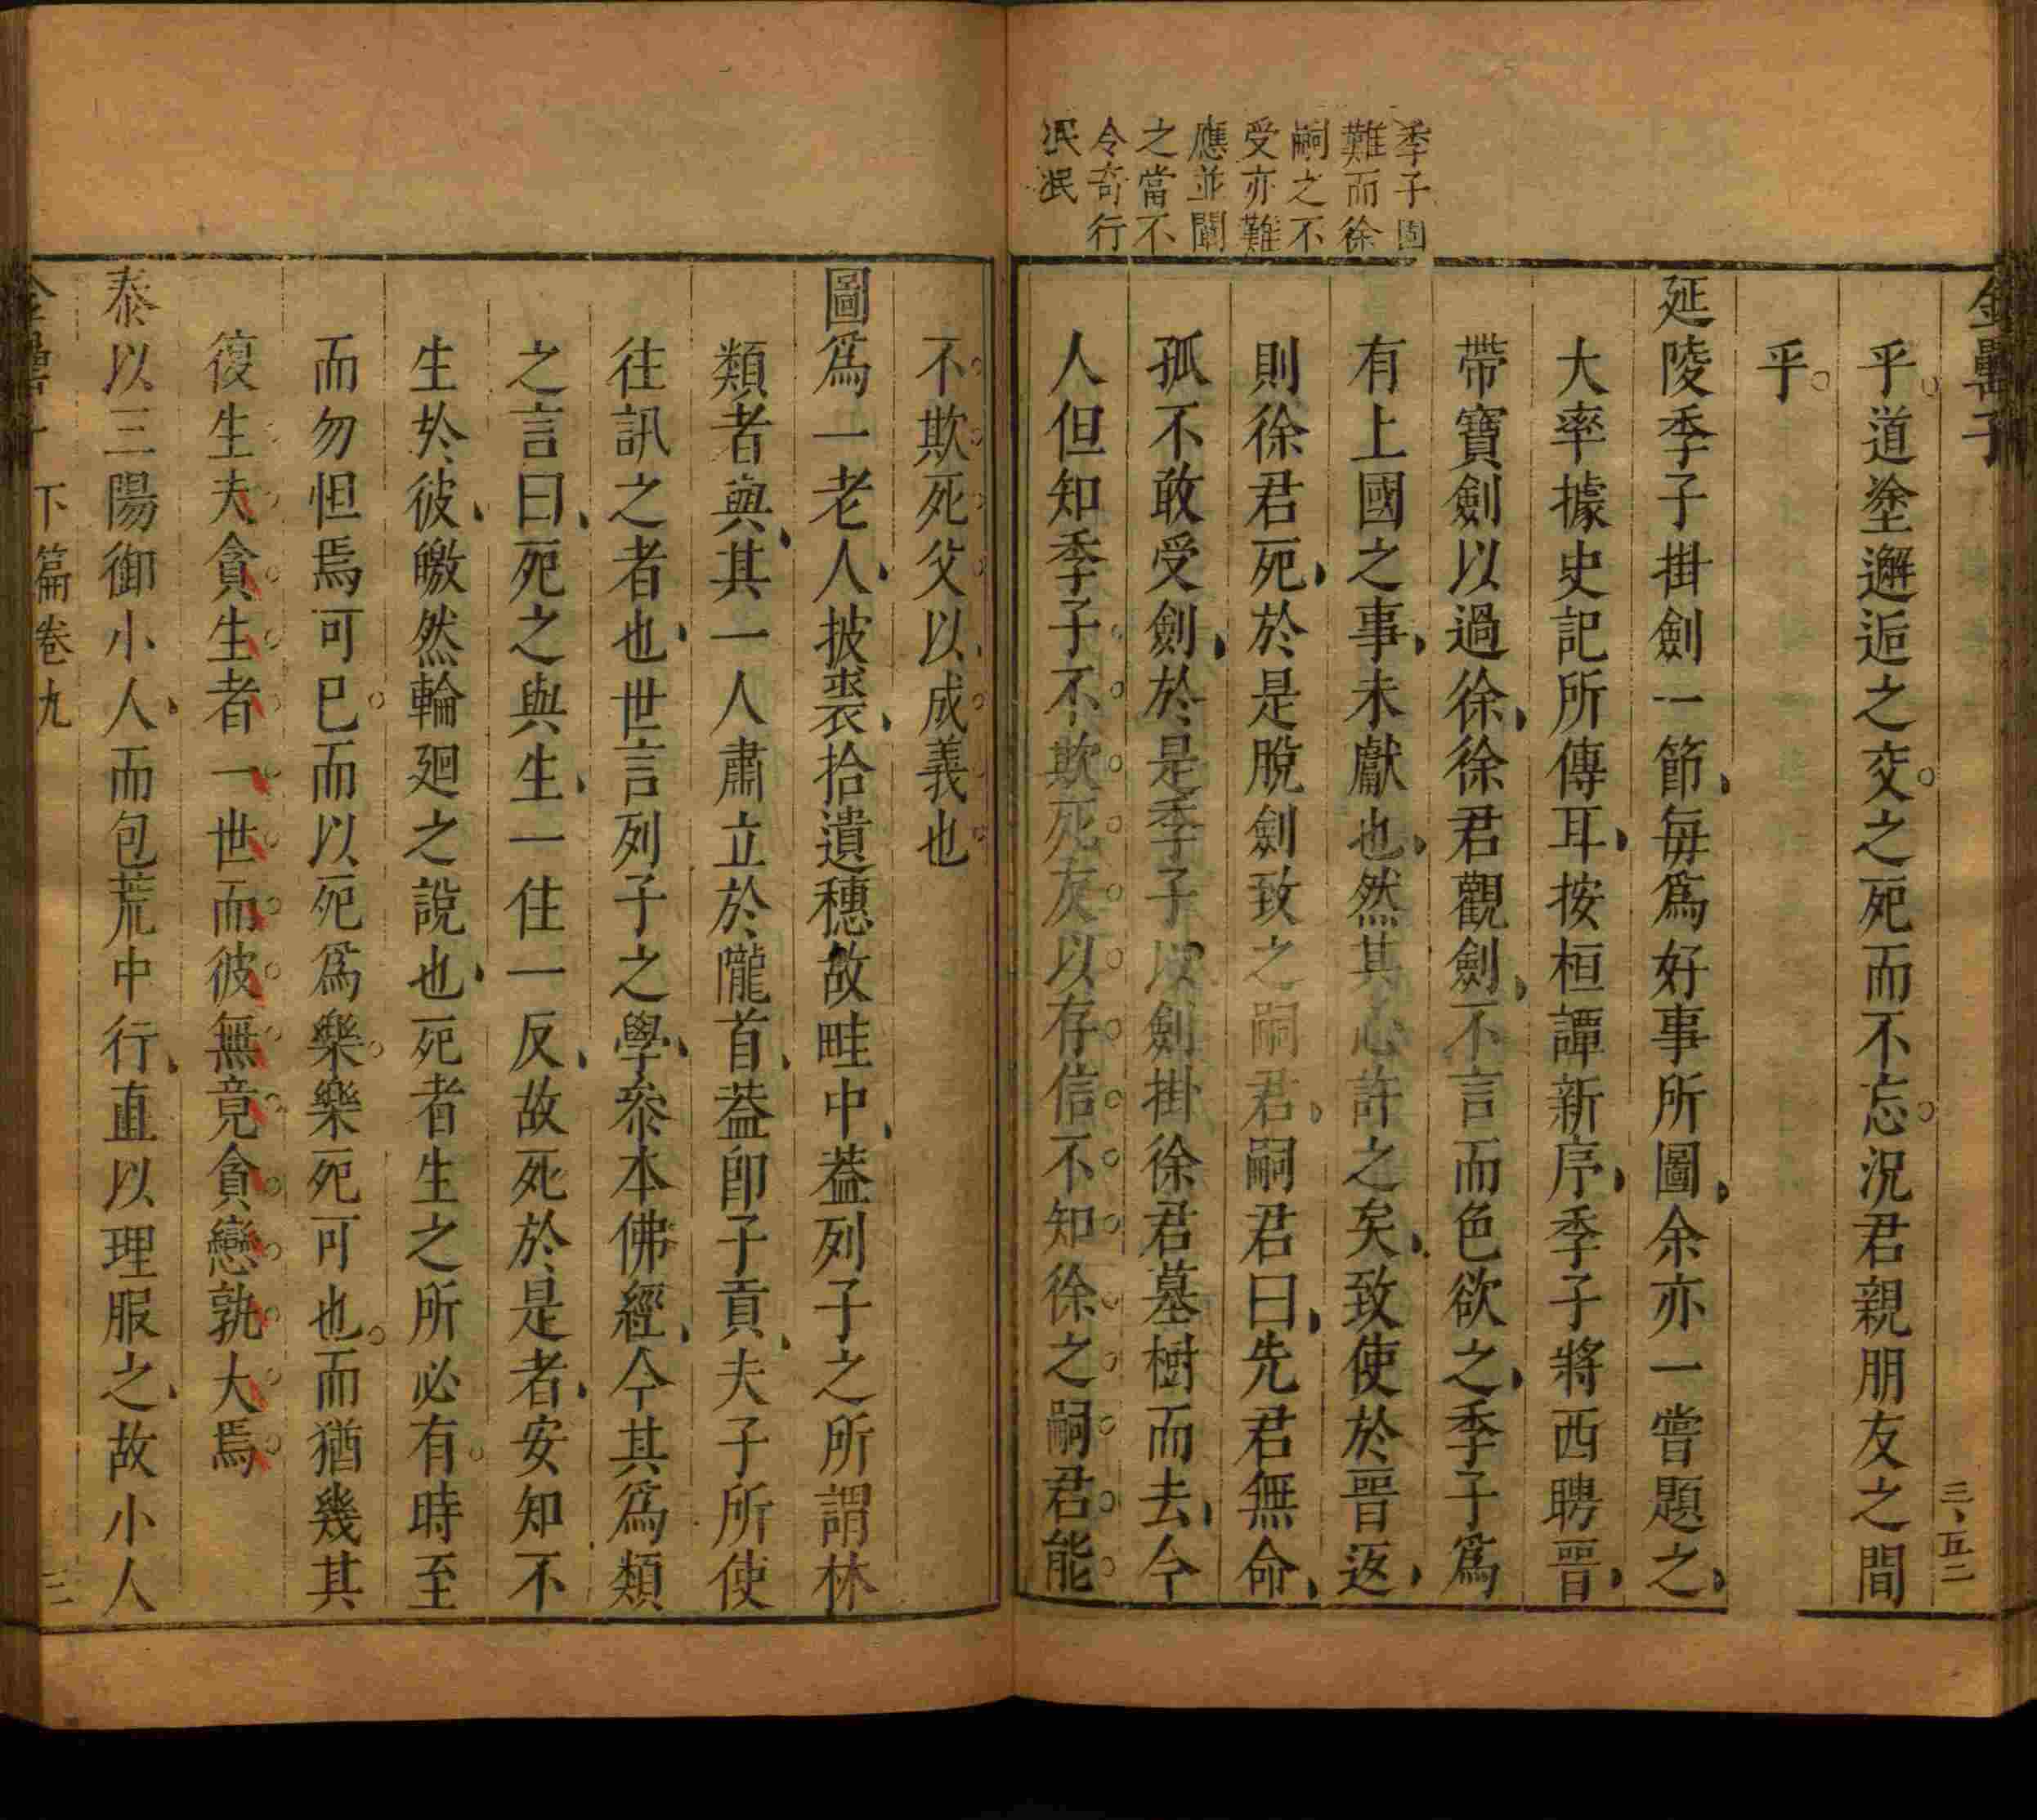 金罍子
三、五二
乎道塗邂逅之交之死而不忘況君親朋友之間
乎
延陵季子掛劍一節每爲好事所圖余亦一嘗題之
大率據史記所傳耳按桓譚新序季子將西聘晉
帶寶劍以過徐徐君觀劍不言而色欲之季子爲
有上國之事未獻也然其心許之矣致使於晉返
則徐君死於是脫劍致之嗣君嗣君曰先君無命
孤不敢受劍於是季子以劍掛徐君墓樹而去今
人但知季子不欺死友以存信不知徐之嗣君能
季子固
難而徐
嗣之不
受亦難
應並闡
之當不
令奇行
泯泯
不欺死父以成義也
圖爲一老人披裘拾遺穗故畦中葢列子之所謂林
類者與其一人肅立於隴首葢卽子貢夫子所使
往訊之者也世言列子之學叅本佛經今其爲類
之言曰死之與生一徃一反故死於是者安知不
生於彼皦然輪廻之說也死者生之所必有時至
而勿怛焉可已而以死爲樂樂死可也而猶幾其
復生夫貪生者一世而彼無竟貪戀孰大焉
泰以三陽御小人而包荒中行直以理服之故小人
金罍子
下篇卷九
三